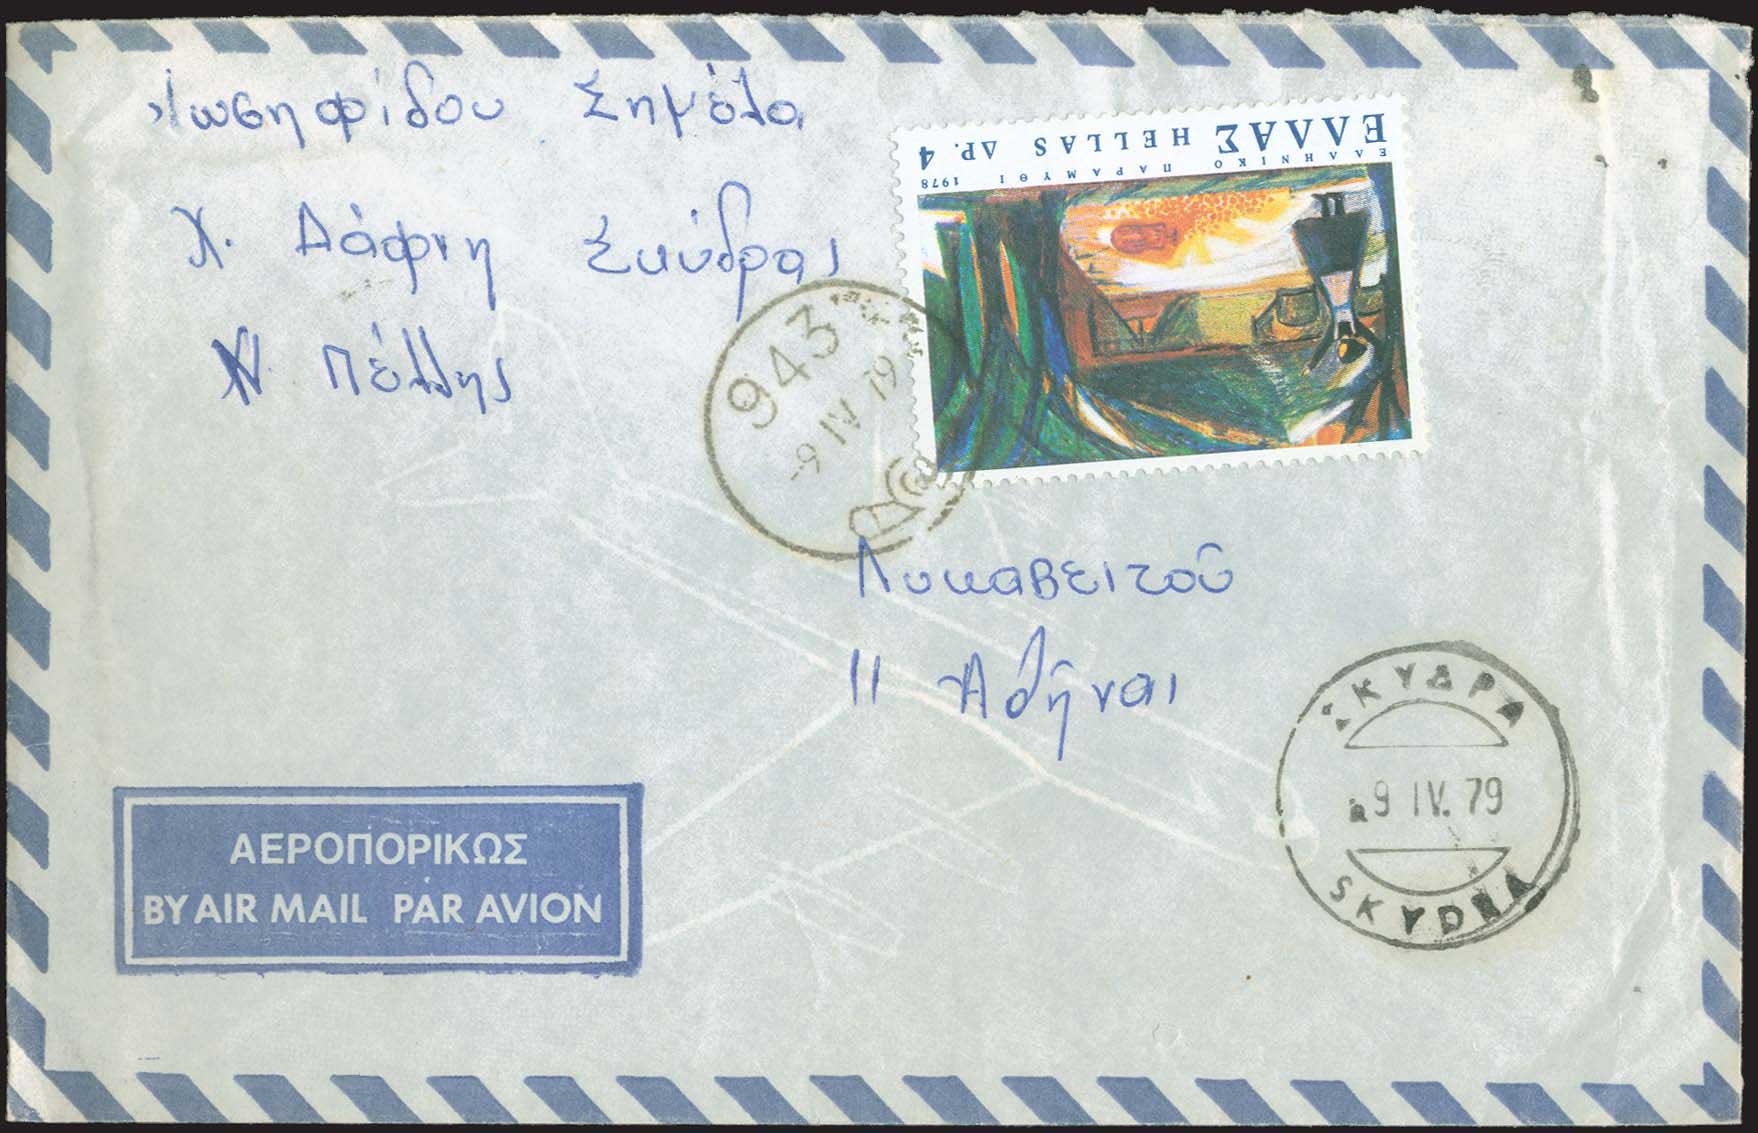 Ιωσηφίδου Σημέλα
Χ. Δάφνη Σκύδρας
Ν. Πέλλης
ΕΛΛΑΣ HELLAS ΔΡ. 4
ΕΛΛΗΝΙΚΟ ΠΑΡΑΜΥΘΙ 1978
943
-9 IV 79
Λυκαβειτοῦ
11 Ἀθῆναι
ΣΚΥΔΡΑ
9 IV. 79
SKYDRA
ΑΕΡΟΠΟΡΙΚΩΣ
BY AIR MAIL PAR AVION